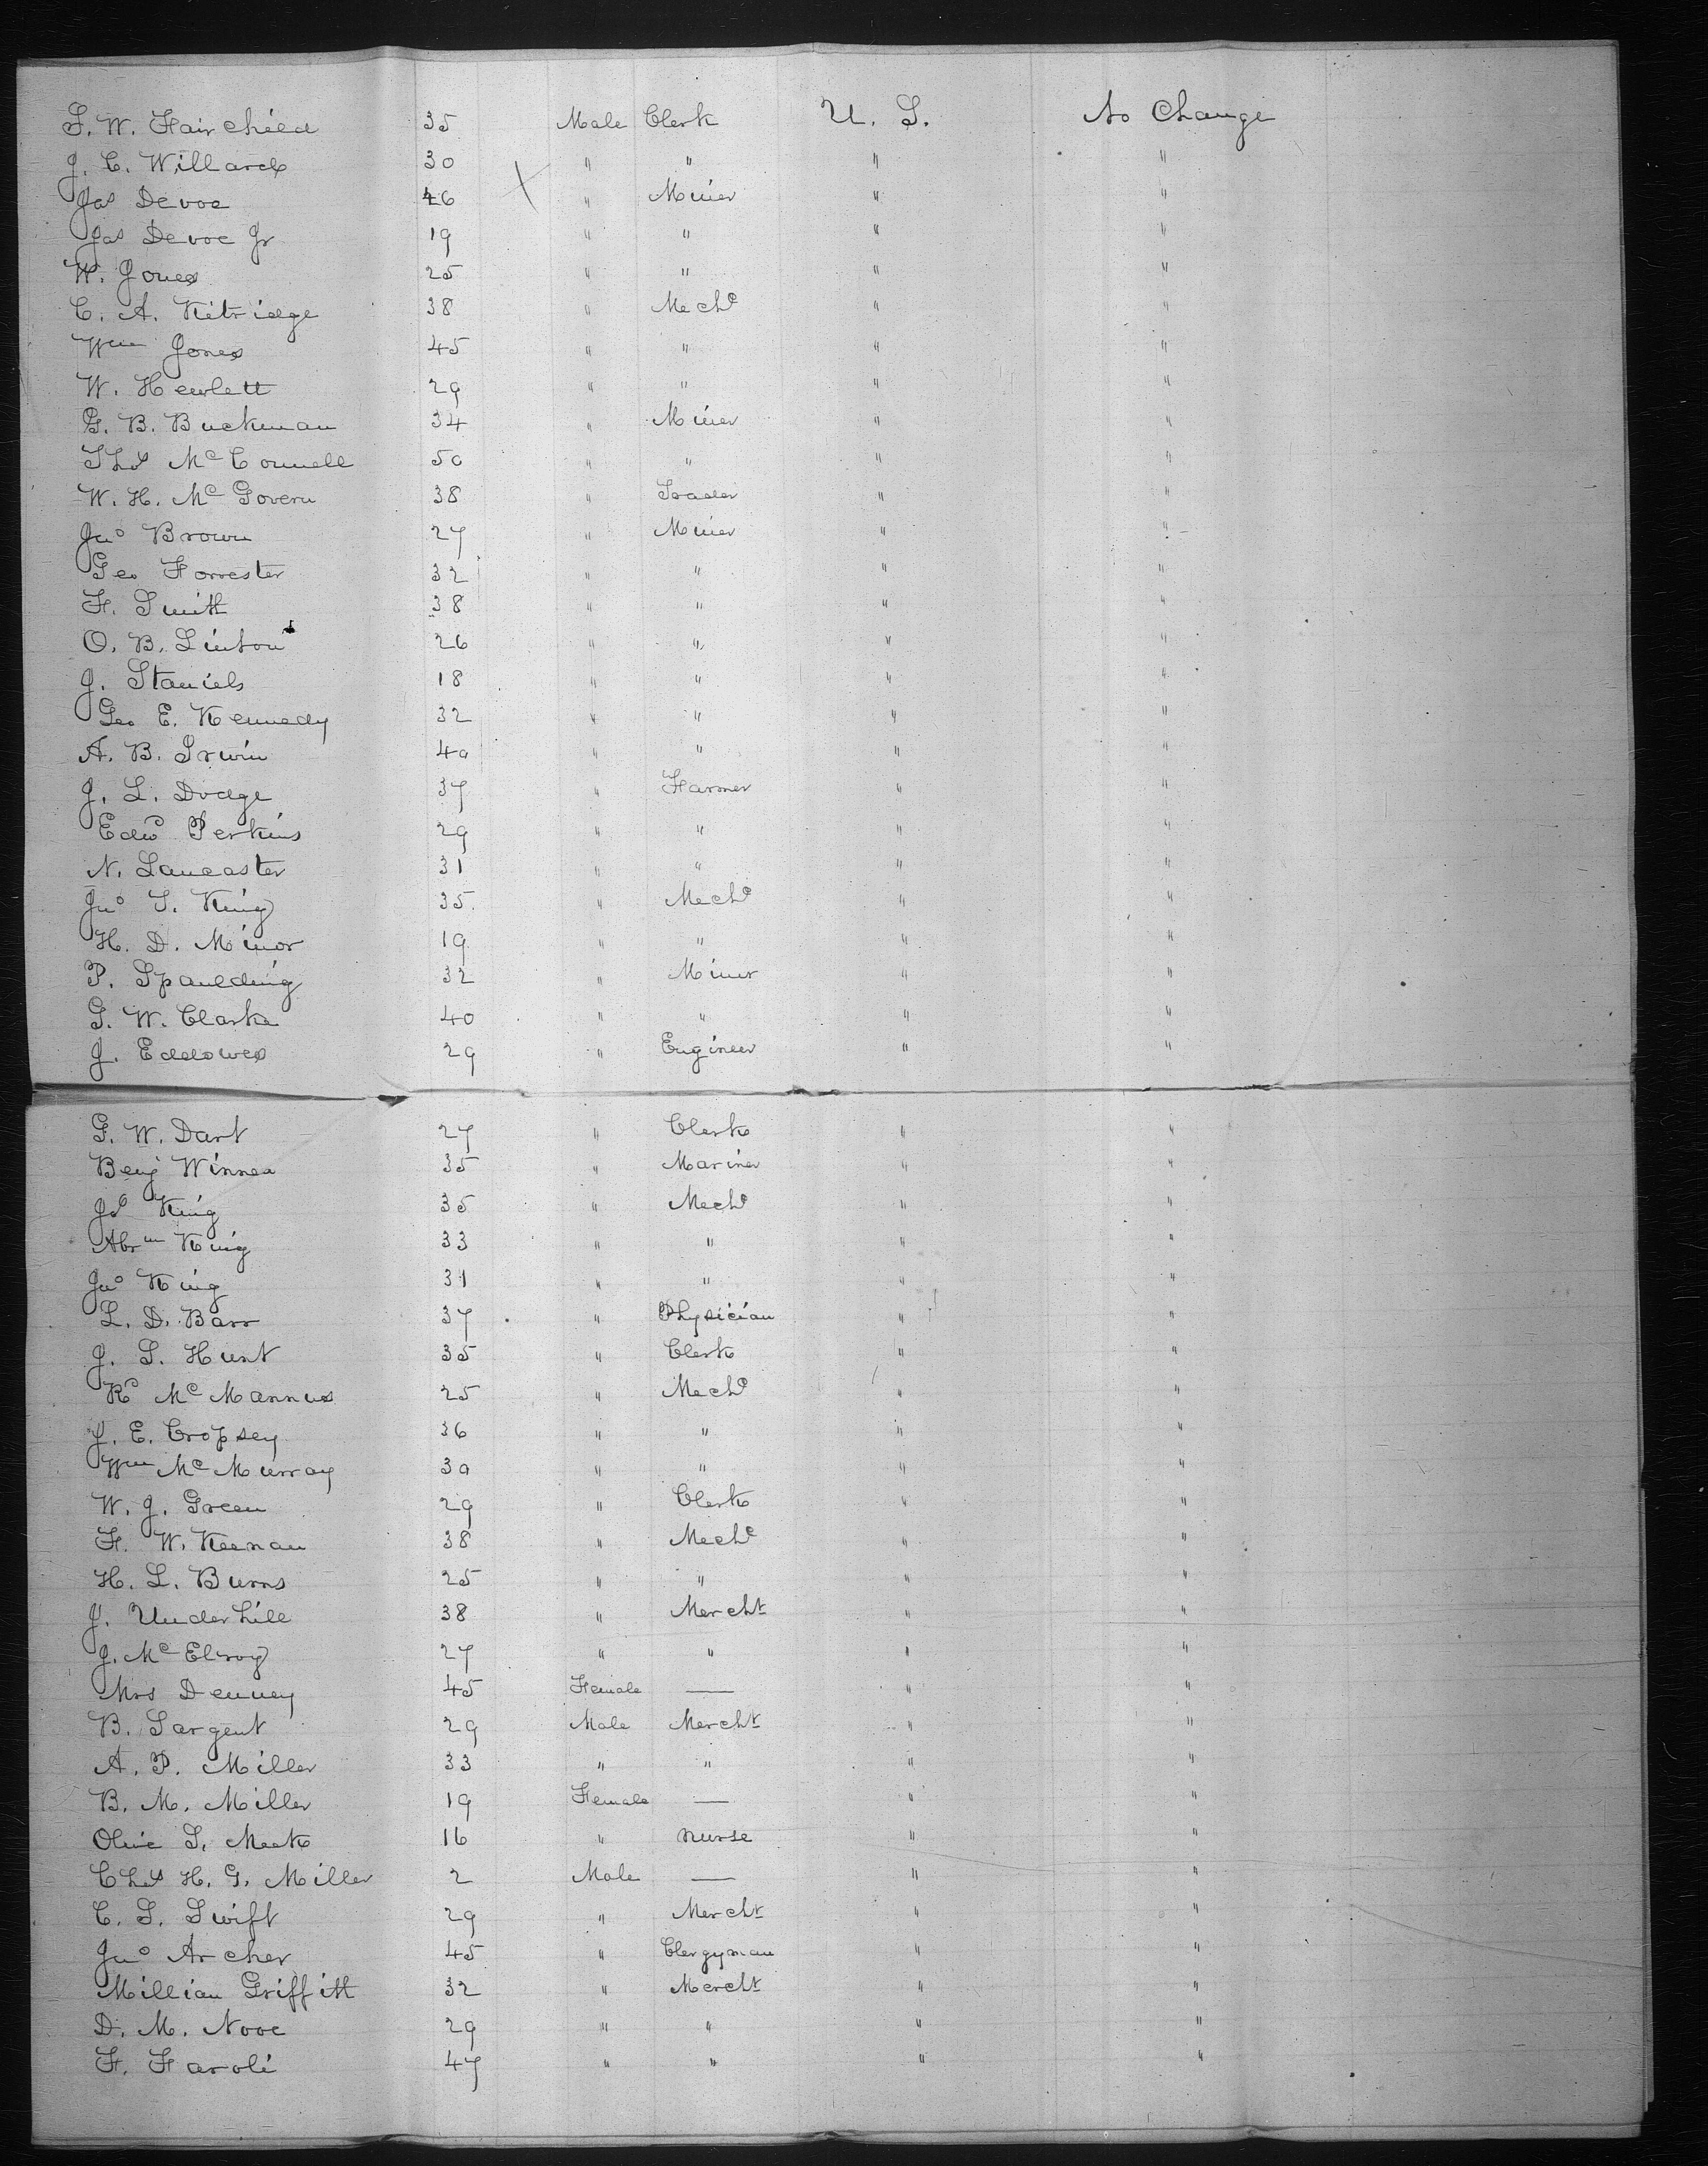 S. W. Fairchild 35 Male Clerk U. S. No Change
J. C. Willard 30 " " " "
Jas Devoe 46 " Miner " "
Jas Devoe Jr 19 " " " "
W. Jones 25 " " " "
C. A. Kitridge 38 " Mechc " "
Wm Jones 45 " " " "
W. Hewlett 29 " " " "
G. B. Buckman 34 " Miner " "
Thos McConnell 50 " " " "
W. H. McGovern 38 " Trader " "
Jno Brown 27 " Miner " "
Geo Forrester 32 " " " "
F. Smith 38 " " " "
O. B. Linton 26 " " " "
J. Staniels 18 " " " "
Geo E. Kennedy 32 " " " "
A. B. Irwin 40 " " " "
J. L. Dodge 37 " Farmer " "
Edwd Perkins 29 " " " "
N. Lancaster 31 " " " "
Jno S. King 35 " Mechc " "
H. D. Minor 19 " " " "
P. Spaulding 32 " Miner " "
G. W. Clarke 40 " " " "
J. Eddowes 29 " Engineer " "
G. W. Dart 27 " Clerk " "
Benj Winnea 35 " Mariner " "
Jos King 35 " Mechc " "
Abrm King 33 " " " "
Jno King 31 " " " "
L. D. Barr 37 " Physician " "
J. S. Hunt 35 " Clerk " "
Rd McMannus 25 " Mechc " "
J. E. Cropsey 36 " " " "
Wm McMurray 30 " " " "
W. J. Green 29 " Clerk " "
F. W. Keenan 38 " Mechc " "
H. L. Burns 25 " " " "
J. Underhill 38 " Mercht " "
J. McElroy 27 " " " "
Mrs Denney 45 Female — " "
B. Sargent 29 Male Mercht " "
A. P. Miller 33 " " " "
B. M. Miller 19 Female — " "
Olive S. Meek 16 " nurse " "
Chas H. G. Miller 2 Male — " "
C. S. Swift 29 " Mercht " "
Jno Archer 45 " Clergyman " "
Millian Griffith 32 " Mercht " "
D. M. Nooe 29 " " " "
F. Faroli 47 " " " "